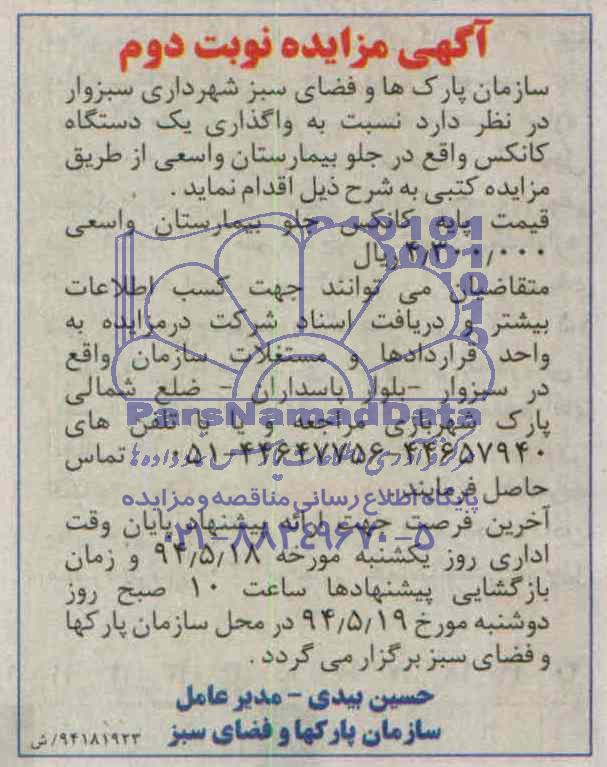 آگهی مزایده نوبت دوم
سازمان پارک ها و فضای سبز شهرداری سبزوار
در نظر دارد نسبت به واگذاری یک دستگاه
کانکس واقع در جلو بیمارستان واسعی از طریق
مزایده کتبی به شرح ذیل اقدام نماید .
قیمت پایه کانکس جلو بیمارستان واسعی
۴٫۳۰۰٫۰۰۰ ریال
متقاضیان می توانند جهت کسب اطلاعات
بیشتر و دریافت اسناد شرکت درمزایده به
واحد قراردادها و مستغلات سازمان واقع
در سبزوار -بلوار پاسداران - ضلع شمالی
ParsNamadData
پارک شهربازی مراجعه و یا با تلفن های
۴۴۶۵۷۹۴۰-۴۴۶۴۷۷۵۶-۰۵۱ تماس
حاصل فرمایند
پایگاه اطلاع رسانی مناقصه و مزایده
آخرین فرصت جهت ارائه پیشنهاد پایان وقت
۰۲۱-۸۸۳۴۹۶۷۰-۵
اداری روز یکشنبه مورخه ۹۴٫۵٫۱۸ و زمان
بازگشایی پیشنهادها ساعت ۱۰ صبح روز
دوشنبه مورخ ۹۴٫۵٫۱۹ در محل سازمان پارکها
و فضای سبز برگزار می گردد .
حسین بیدی - مدیر عامل
سازمان پارکها و فضای سبز
۹۴۱۸۱۹۲۳/ش